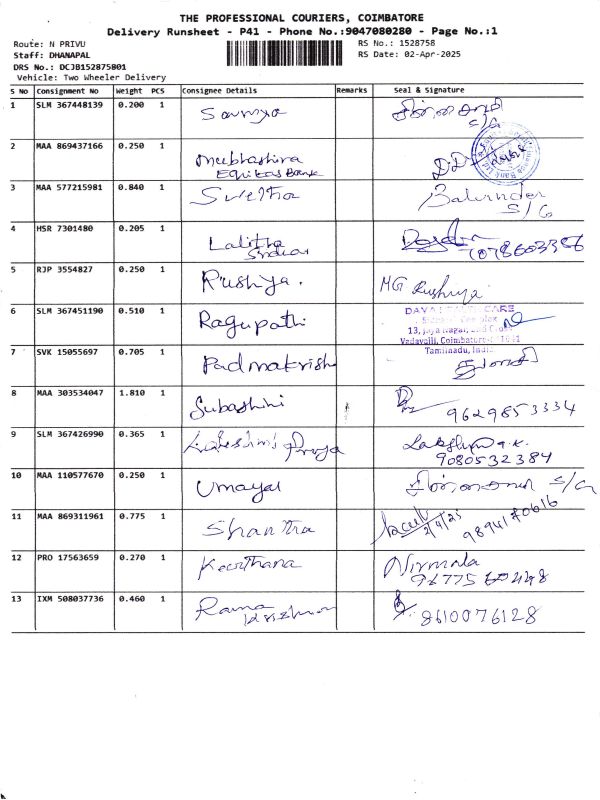 THE PROFESSIONAL COURIERS, COIMBATORE
Delivery Runsheet - P41 - Phone No.:9047080280 - Page No.:1
Route: N PRIVU
RS No.: 1528758
Staff: DHANAPAL
RS Date: 02-Apr-2025
DRS No.: DCJB152875801
Vehicle: Two Wheeler Delivery
S No Consignment No Weight PCS Consignee Details Remarks Seal & Signature
1 SLM 367448139 0.200 1 Sowmya சின்னசாமி
S/G
2 MAA 869437166 0.250 1 Mubhashira
Equitas Bank
3 MAA 577215981 0.840 1 Swetha Balunder
S/G
4 HSR 7301480 0.205 1 Lalitha
5 RJP 3554827 0.250 1 Rushya. MG Rushya
6 SLM 367451190 0.510 1 Ragupathi DAYA CARE
Complex
13, Jaya Nagar, 2nd Cross
Vadavalli, Coimbatore-
Tamilnadu, India
7 SVK 15055697 0.705 1 Padmakrish துளசி
8 MAA 303534047 1.810 1 Subashini 9629853334
9 SLM 367426990 0.365 1 Lakshmi Priya Lakshmi
9080532384
10 MAA 110577670 0.250 1 Umayal சின்னசாமி S/G
11 MAA 869311961 0.775 1 Shantha
2/4/25
9894170616
12 PRO 17563659 0.270 1 Keerthana Nirmala
13 IXM 508037736 0.460 1 Rama
Krishnan
8610076128